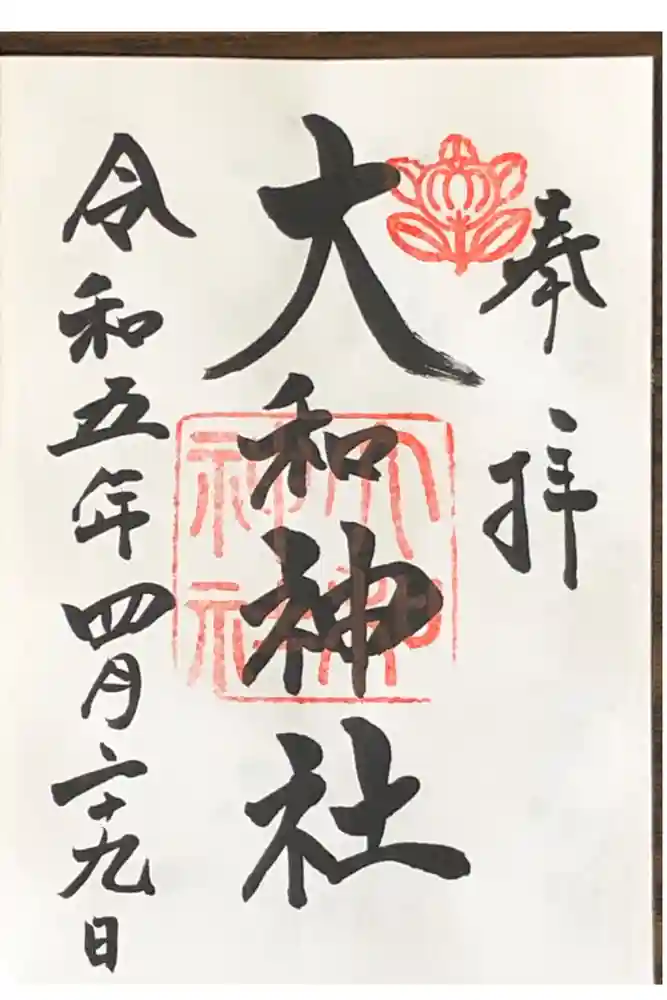 奉拝
大和神社
令和五年四月二十九日